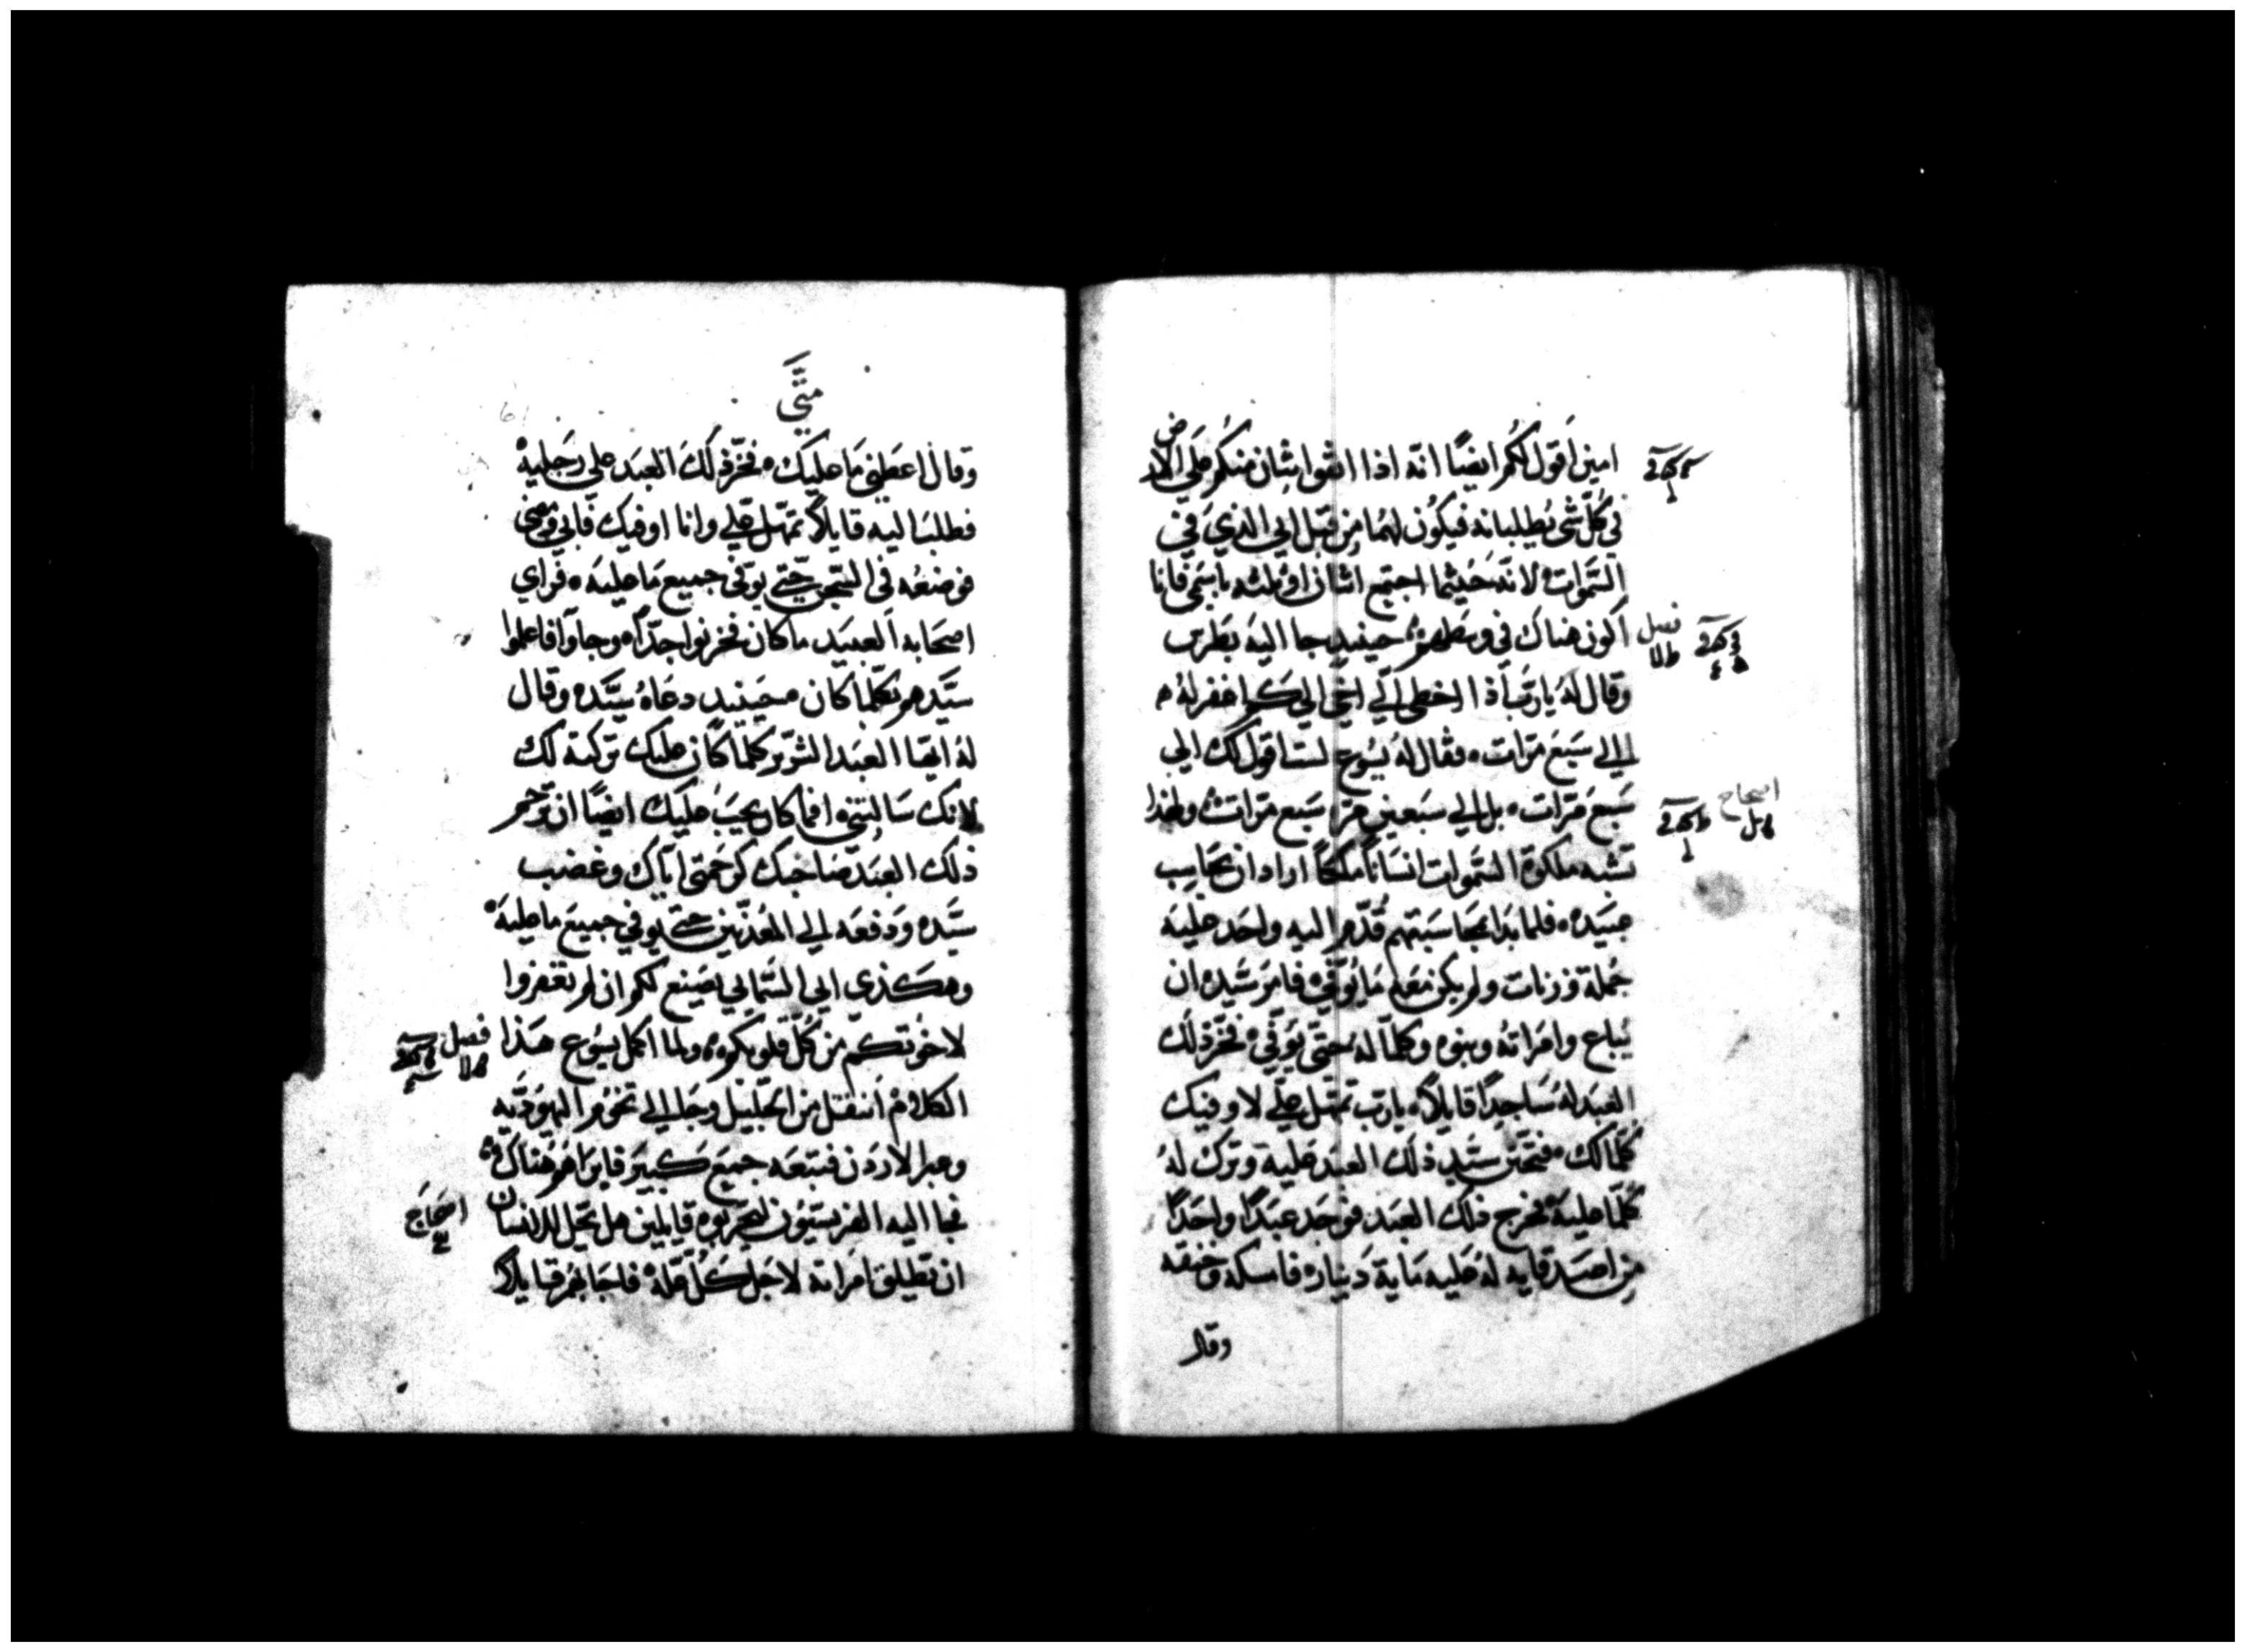 امين اَقول لكُم ايضًا انّه اذا اتفوا اثنان منكُم عَلي الارض
في كلّ شي يُطلبانه فيكون لهُما مِن قبَل ابي الذي في
السَّموات لانّه حَيثما اجتمِع اثنان او ثلثه باسمي فانا
اَكون هناك في وسَطهم حينيدٍ جا اليه بطرس
فصل
وقال لهُ يارَبّ اذا اخطي اليّ اخي الي كم اغفر لهُ
الي سَبَع مَرّات فقال لهُ يَسُوع لست اقول لك الي
سَبَع مَرّات بل الي سَبعين مرّه سَبَع مَرّات ولهذا
اصحاح
تشبه ملكوة السَّموات انسَاناً ملكاً اراد ان يحَاسِب
عبيَده فلما بَدا بمحَاسَبتهم قُدّم اليه واحَد عليَه
جُملة وزنات ولم يكن معَه مَا يُوَفّي فامَر سَيّده ان
يُباع وامَراتهُ وبنوه وكلمّا له حتّي يُوَفّي فخرّ ذلك
العَبَد لهُ سَاجِداً قايلاً يارَبّ تمَهّل عَلَيّ لاوفيك
كُلّمالك فتحَنن سَيّد ذلك العَبد عَليه وترك لهُ
كُلّما عليَه فخرج ذلك العَبَد فوجَد عَبَدًا واحَدًا
مِن اصَدقايه لهُ عَليه مَاية دَينار فامسكه وخنقه
وقال
متَّي
61
وقال اعَطِني مَا عليَك فخرّ ذلَك العَبَد علي رجَليهْ
فطلبَ اليه قايلاً تمَهّل عَلَي وانا اوفيك فَابي ومضي
فوضعَه في السّجن حتّي يوَفّي جميع مَا عليَه فراي
اصحَابه العَبيَد ما كان فحزنوا جدّاً وجاوا فاعلموا
سَيَّدهم بكلّما كان حينيدٍ دعَاهُ سَيَّده وقال
لهُ ايّهَا العَبَد الشرّير كلمّا كان عليك تركته لك
لانك سَالتني افما كان يجِبَ عليَك ايضًا ان ترحم
ذلك العَبَد صَاحبَك كرحمَتي ايّاك وغضَب
سَيَّده وَدفعَه الي المُعذّبين حتّي يوفي جميع ما عليَه
وهكَذي ابي السَّمايي يَصنع لكم ان لم تغفروا
لاخَوتكم مِن كلّ قلوبكم ولما اكمل يسَوع هَذا
فصل
الكلامْ اَنتقل مِن الجَليل وجَا الي تخوم اليهَوديّه
وعبر الاردَن فتبعَه جميَع كَبيَر فابرَاهم هُناك
فجا اليه الفريسيّون ليجَرّبوه قايلين هل يَحَل للانسان
اصَحَاح
ان يَطلق امَراته لاجَل كلّ علّه فاجَابهُم قايلاً